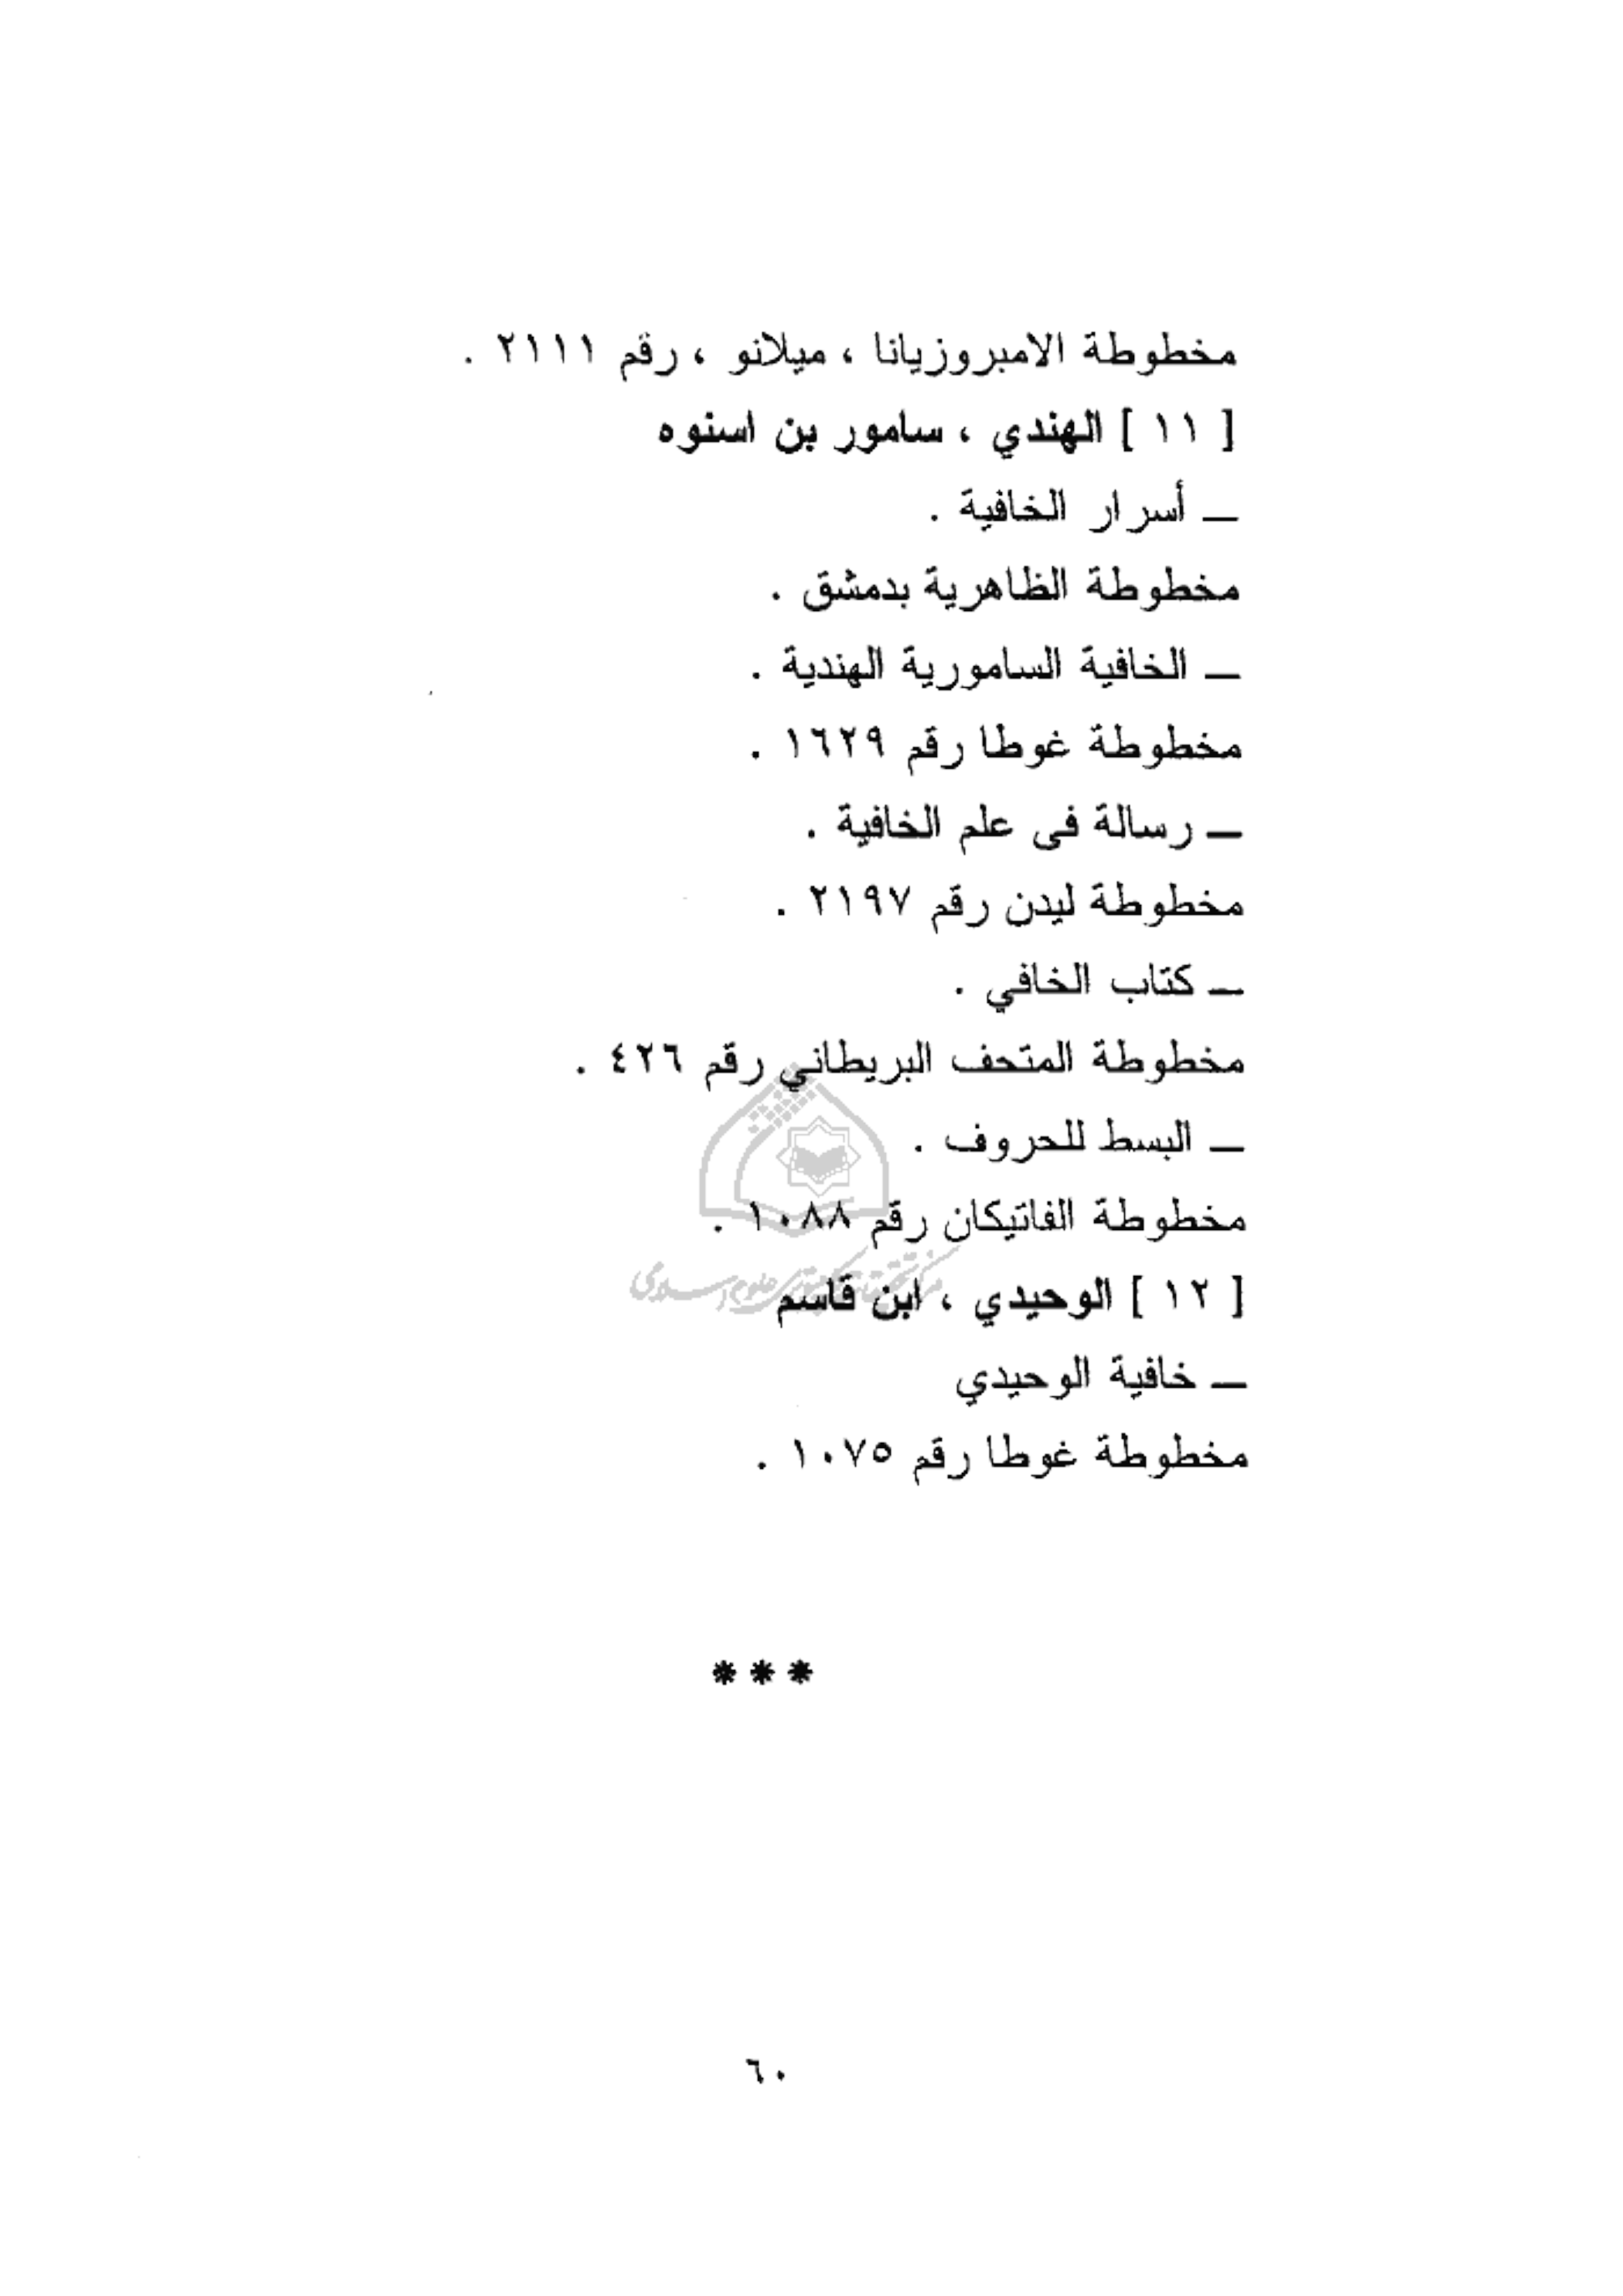 مخطوطة الامبروزيانا ، ميلانو ، رقم ٢١١١ .
[ ١١ ] الهندي ، سامور بن اسنوه
ـ أسرار الخافية .
مخطوطة الظاهرية بدمشق .
ـ الخافية السامورية الهندية .
مخطوطة غوطا رقم ١٦٢٩ .
ـ رسالة فى علم الخافية .
مخطوطة ليدن رقم ٢١٩٧ .
ـ كتاب الخافي .
مخطوطة المتحف البريطاني رقم ٤٢٦ .
ـ البسط للحروف .
مخطوطة الفاتيكان رقم ١٠٨٨ .
[ ١٢ ] الوحيدي ، ابن قاسم
ـ خافية الوحيدي
مخطوطة غوطا رقم ١٠٧٥ .
***
٦٠